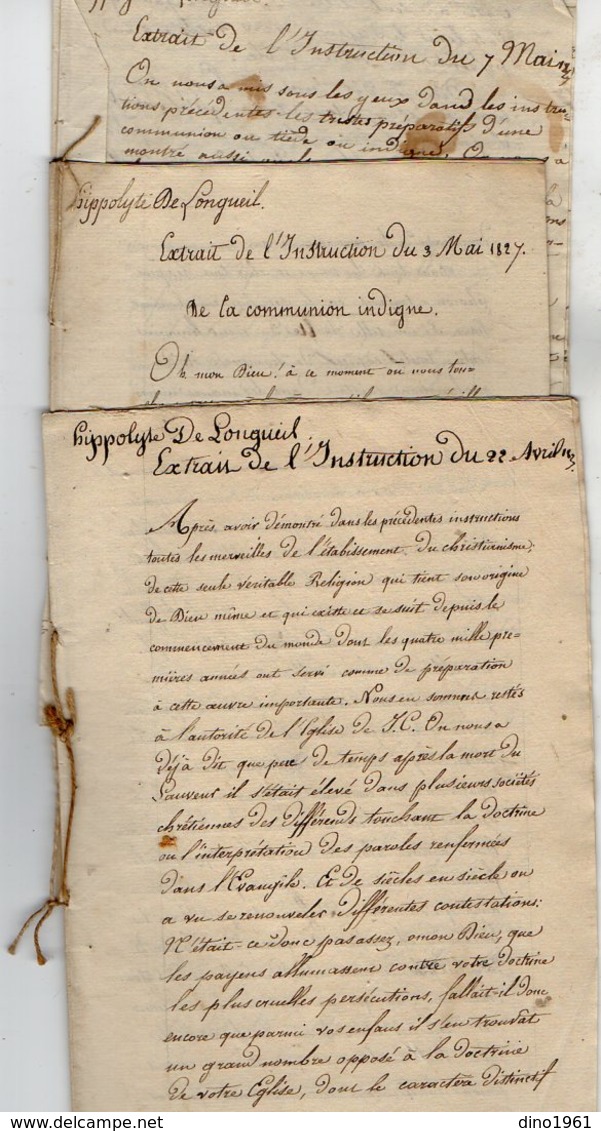 Extrait de l'Instruction du 7 Mai
On nous a mis sous les yeux dans les instruc-
tions précédentes les tristes préparatifs d'une
communion ou tiède ou indigne, On nous a
montré aussi
hippolyte De Longueil.
Extrait de l'Instruction du 3 Mai 1827.
De la communion indigne.
Oh mon Dieu! à ce moment où nous tou-
hippolyte De Longueil.
Extrait de l'Instruction du 22 Avril
Après avoir démontré dans les précédentes instructions
toutes les merveilles de l'étabissement du christianisme;
de cette seule véritable Religion qui tient son origine
de Dieu même et qui existe et se suit depuis le
commencement du monde dont les quatre mille pre-
mières années ont servi comme de préparation
à cette œuvre importante. Nous en sommes restés
à l'autorité de l'Eglise de J.C. On nous a
déjà dit que peu de temps après la mort du
Sauveur il s'était élevé dans plusieurs sociétés
chrétiennes des différends touchant la doctrine
ou l'interprétation des paroles renfermées
dans l'Evangile. Et de siècles en siècle on
a vu se renouveler différentes contestations:
N'était-ce donc pas assez, o mon Dieu, que
les payens allumassent contre votre doctrine
les plus cruelles persécutions, fallait-il donc
encore que parmi vos enfans il s'en trouvât
un grand nombre opposé à la doctrine
de votre Eglise, dont le caractère distinctif
dino1961